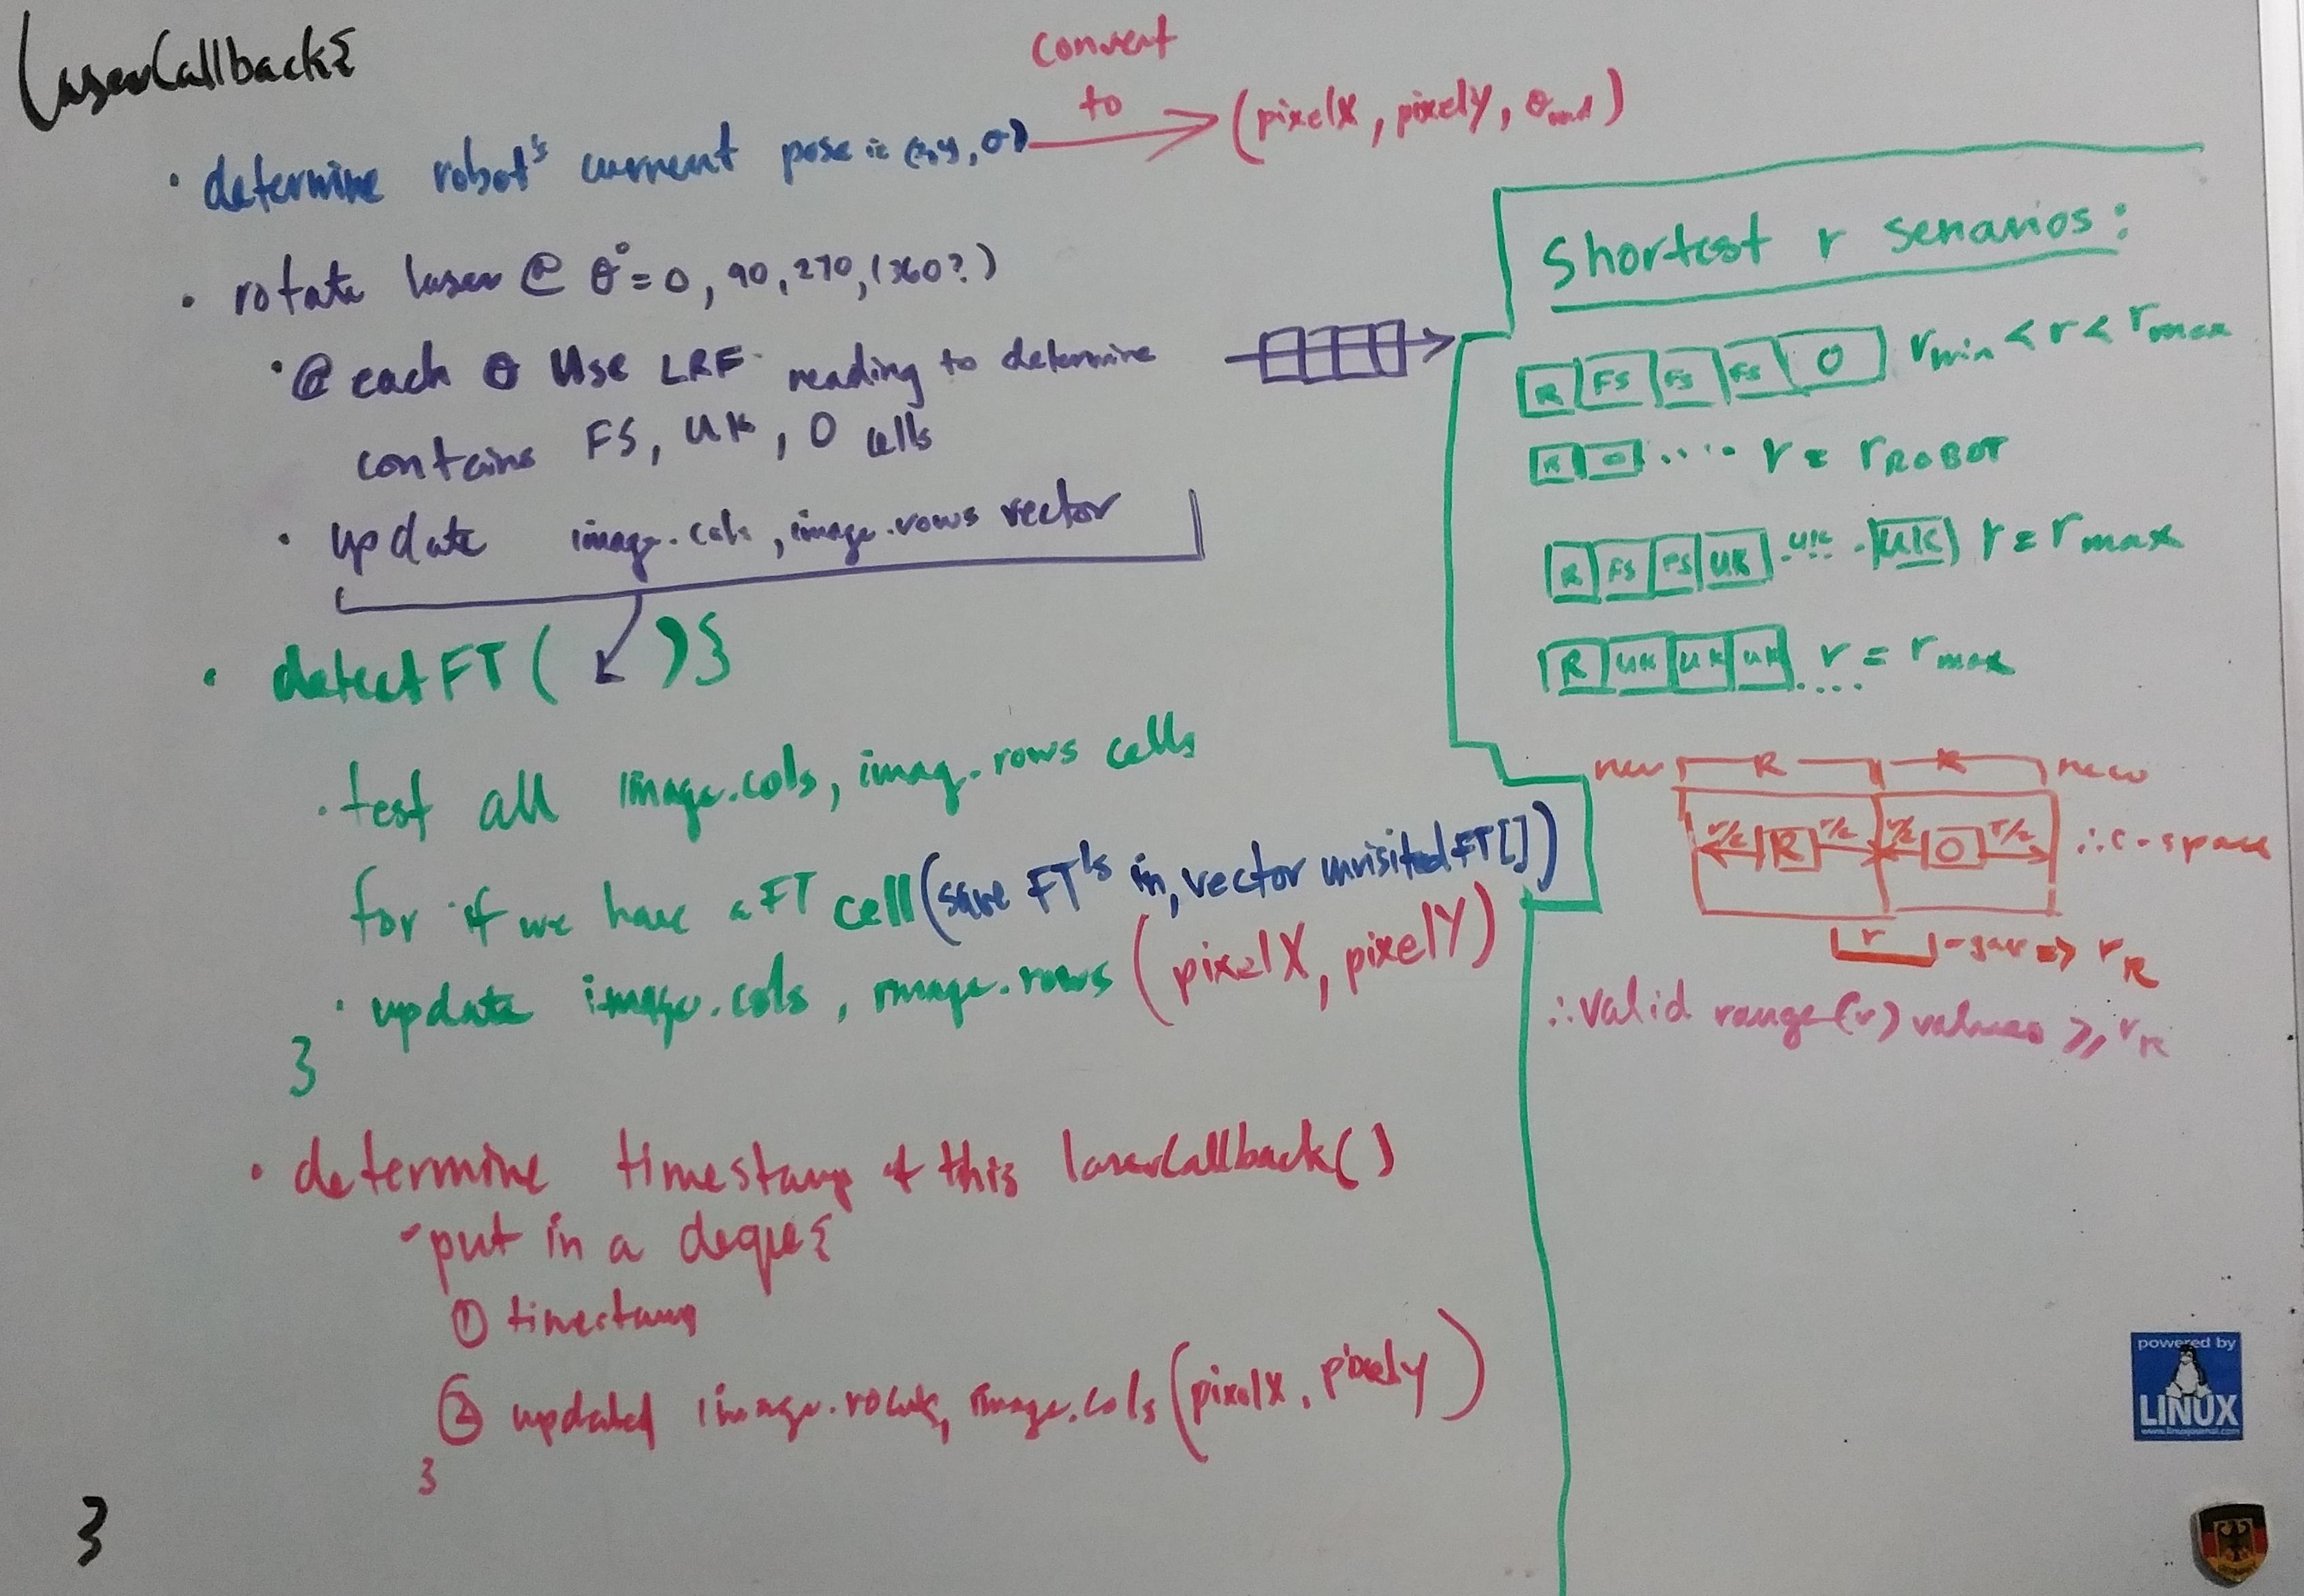 laserCallback{
convert
to
(pixelX, pixelY, θrad)
• determine robot's current pose is (x,y,θ)
• rotate laser @ θ°=0, 90, 270, (360?)
• @ each θ use LRF reading to determine
contains FS, UK, O cells
• update image.cols, image.rows vector
• detectFT( ){
• test all image.cols, imag.rows cells
for if we have a FT cell (save FT's in, vector unvisitedFT[])
• update image.cols, image.rows (pixelX, pixelY)
}
• determine timestamp of this laserCallback()
- put in a deque{
① timestamp
② updated image.rows, image.cols (pixelX, pixelY)
}
}
Shortest r senarios:
R FS FS FS O rmin < r < rmax
R O .... r = rROBOT
R FS FS UK ..UK... UK r = rmax
R UK UK UK .... r = rmax
new R R new
r/2 R r/2 r/2 O r/2 ∴ c-space
r ⇒ rR
∴ valid range(r) values ≥ rR
powered by
LINUX
www.linuxjournal.com